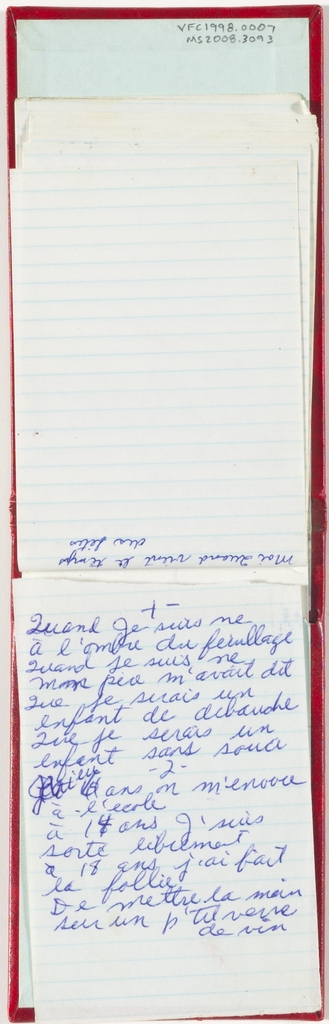 VFC1998.0007
MS2008.3093
Moi quand vient le temps
des fêtes
-1-
Quand je suis ne
à l'ombre du feuillage
Quand je suis ne
mon père m'avait dit
Que je serais un
enfant de debauche
Que je serais un
enfant sans souci
-2-
ans on m'envoie
à l'école
à 14 ans j'suis
sorte librement
a 18 ans j'ai fait
la follie
De mettre la main
sur un p'tit verre
de vin